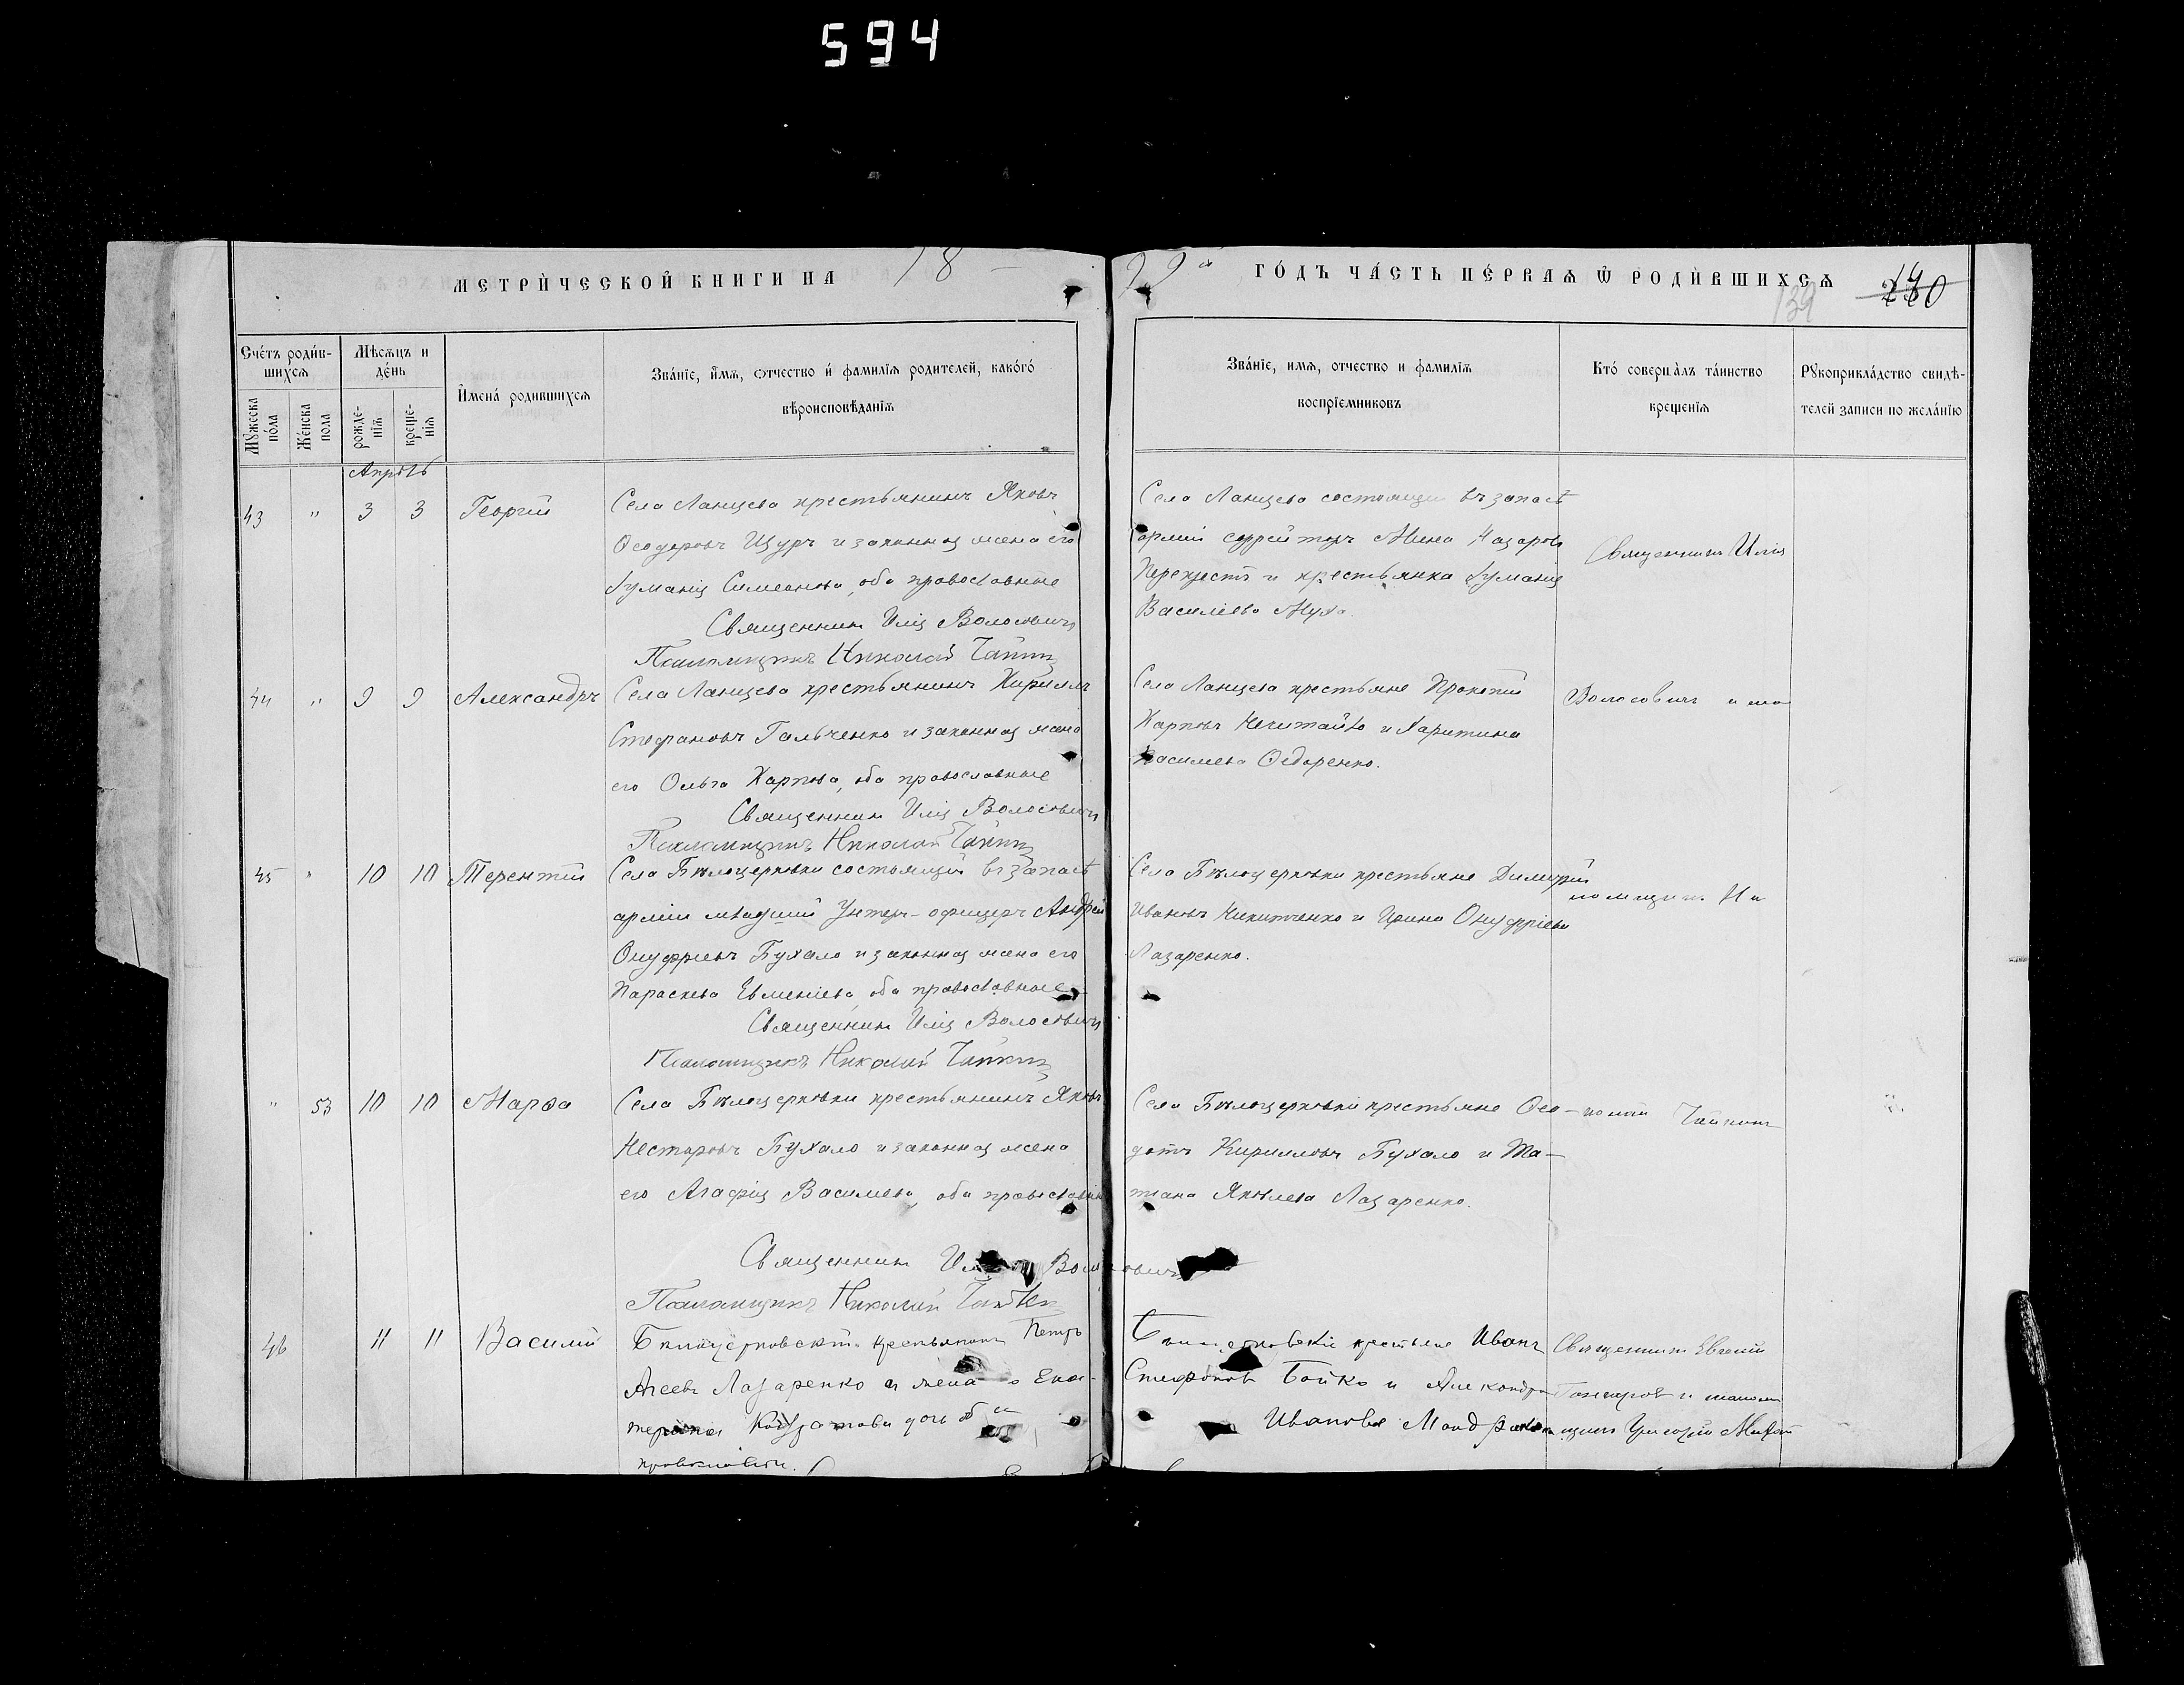 594
МЕТРИЧЕСКОЙ КНИГИ НА 18
99 ГОДЪ ЧАСТЬ ПЕРВАЯ Ѡ РОДИВШИХСЯ
139
Счетъ родив-
шихся
Мѣсяцъ и
день
Мужеска пола
Женска пола
рожде-
нія
креще-
нія
Имена родившихся
Званіе, имя, отчество и фамилія родителей, какого
вѣроисповѣданія
Званіе, имя, отчество и фамилія
воспріемниковъ
Кто совершалъ таинство
крещенія
Рукоприкладство свидѣ-
телей записи по желанію
Апрѣль
43 " 3 3 Георгій
Села Ланцева крестьянинъ Яковъ
Ѳеодоровъ Щуръ и законная жена его
Іуманія Симеонова, оба православные
Священникъ Илія Волосовичъ
Псаломщикъ Николай
Села Ланцева состоящій въ запасѣ
арміи ефрейторъ Мина Назаровъ
Перехрестъ и крестьянка Іуманія
Василіева Муха.
Священникъ Илія
44 " 9 9 Александръ
Села Ланцева крестьянинъ Кириллъ
Стефановъ Гальченко и законная жена
его Ольга Карпова, оба православные
Священникъ Илія Волосовичъ
Псаломщикъ Николай
Села Ланцева крестьяне Прокопій
Карповъ Нечитайло и Харитина
Василіева Ѳедоренко.
Волосовичъ и пса-
45 " 10 10 Терентій
Села Бѣлоцерковки состоящій въ запасѣ
арміи младшій унтеръ-офицеръ Андрей
Онуфріевъ Бухало и законная жена его
Параскева Евменіева, оба православные
Священникъ Илія Волосовичъ
Псаломщикъ Николай
Села Бѣлоцерковки крестьяне Димитрій
Ивановъ Никитченко и Ирина Онуфріева
Лазаренко.
ломщикъ Ни
" 53 10 10 Марѳа
Села Бѣлоцерковки крестьянинъ Яковъ
Несторовъ Бухало и законная жена
его Агафія Василіева, оба православные
Священникъ Илія Волосовичъ
Псаломщикъ Николай
Села Бѣлоцерковки крестьяне Ѳео-
дотъ Кирилловъ Бухало и Та-
тіана Яковлева Лазаренко.
колай
46 11 11 Василій
Бѣлоцерковскій крестьянинъ Петръ
Агеевъ Лазаренко и жена Ека-
терина оба
православные.
Бѣлоцерковскіе крестьяне Иванъ
Стефановъ Бойко и Александра
Иванова
Священникъ Евгеній
Гончаровъ и псалом
щикъ Григорій